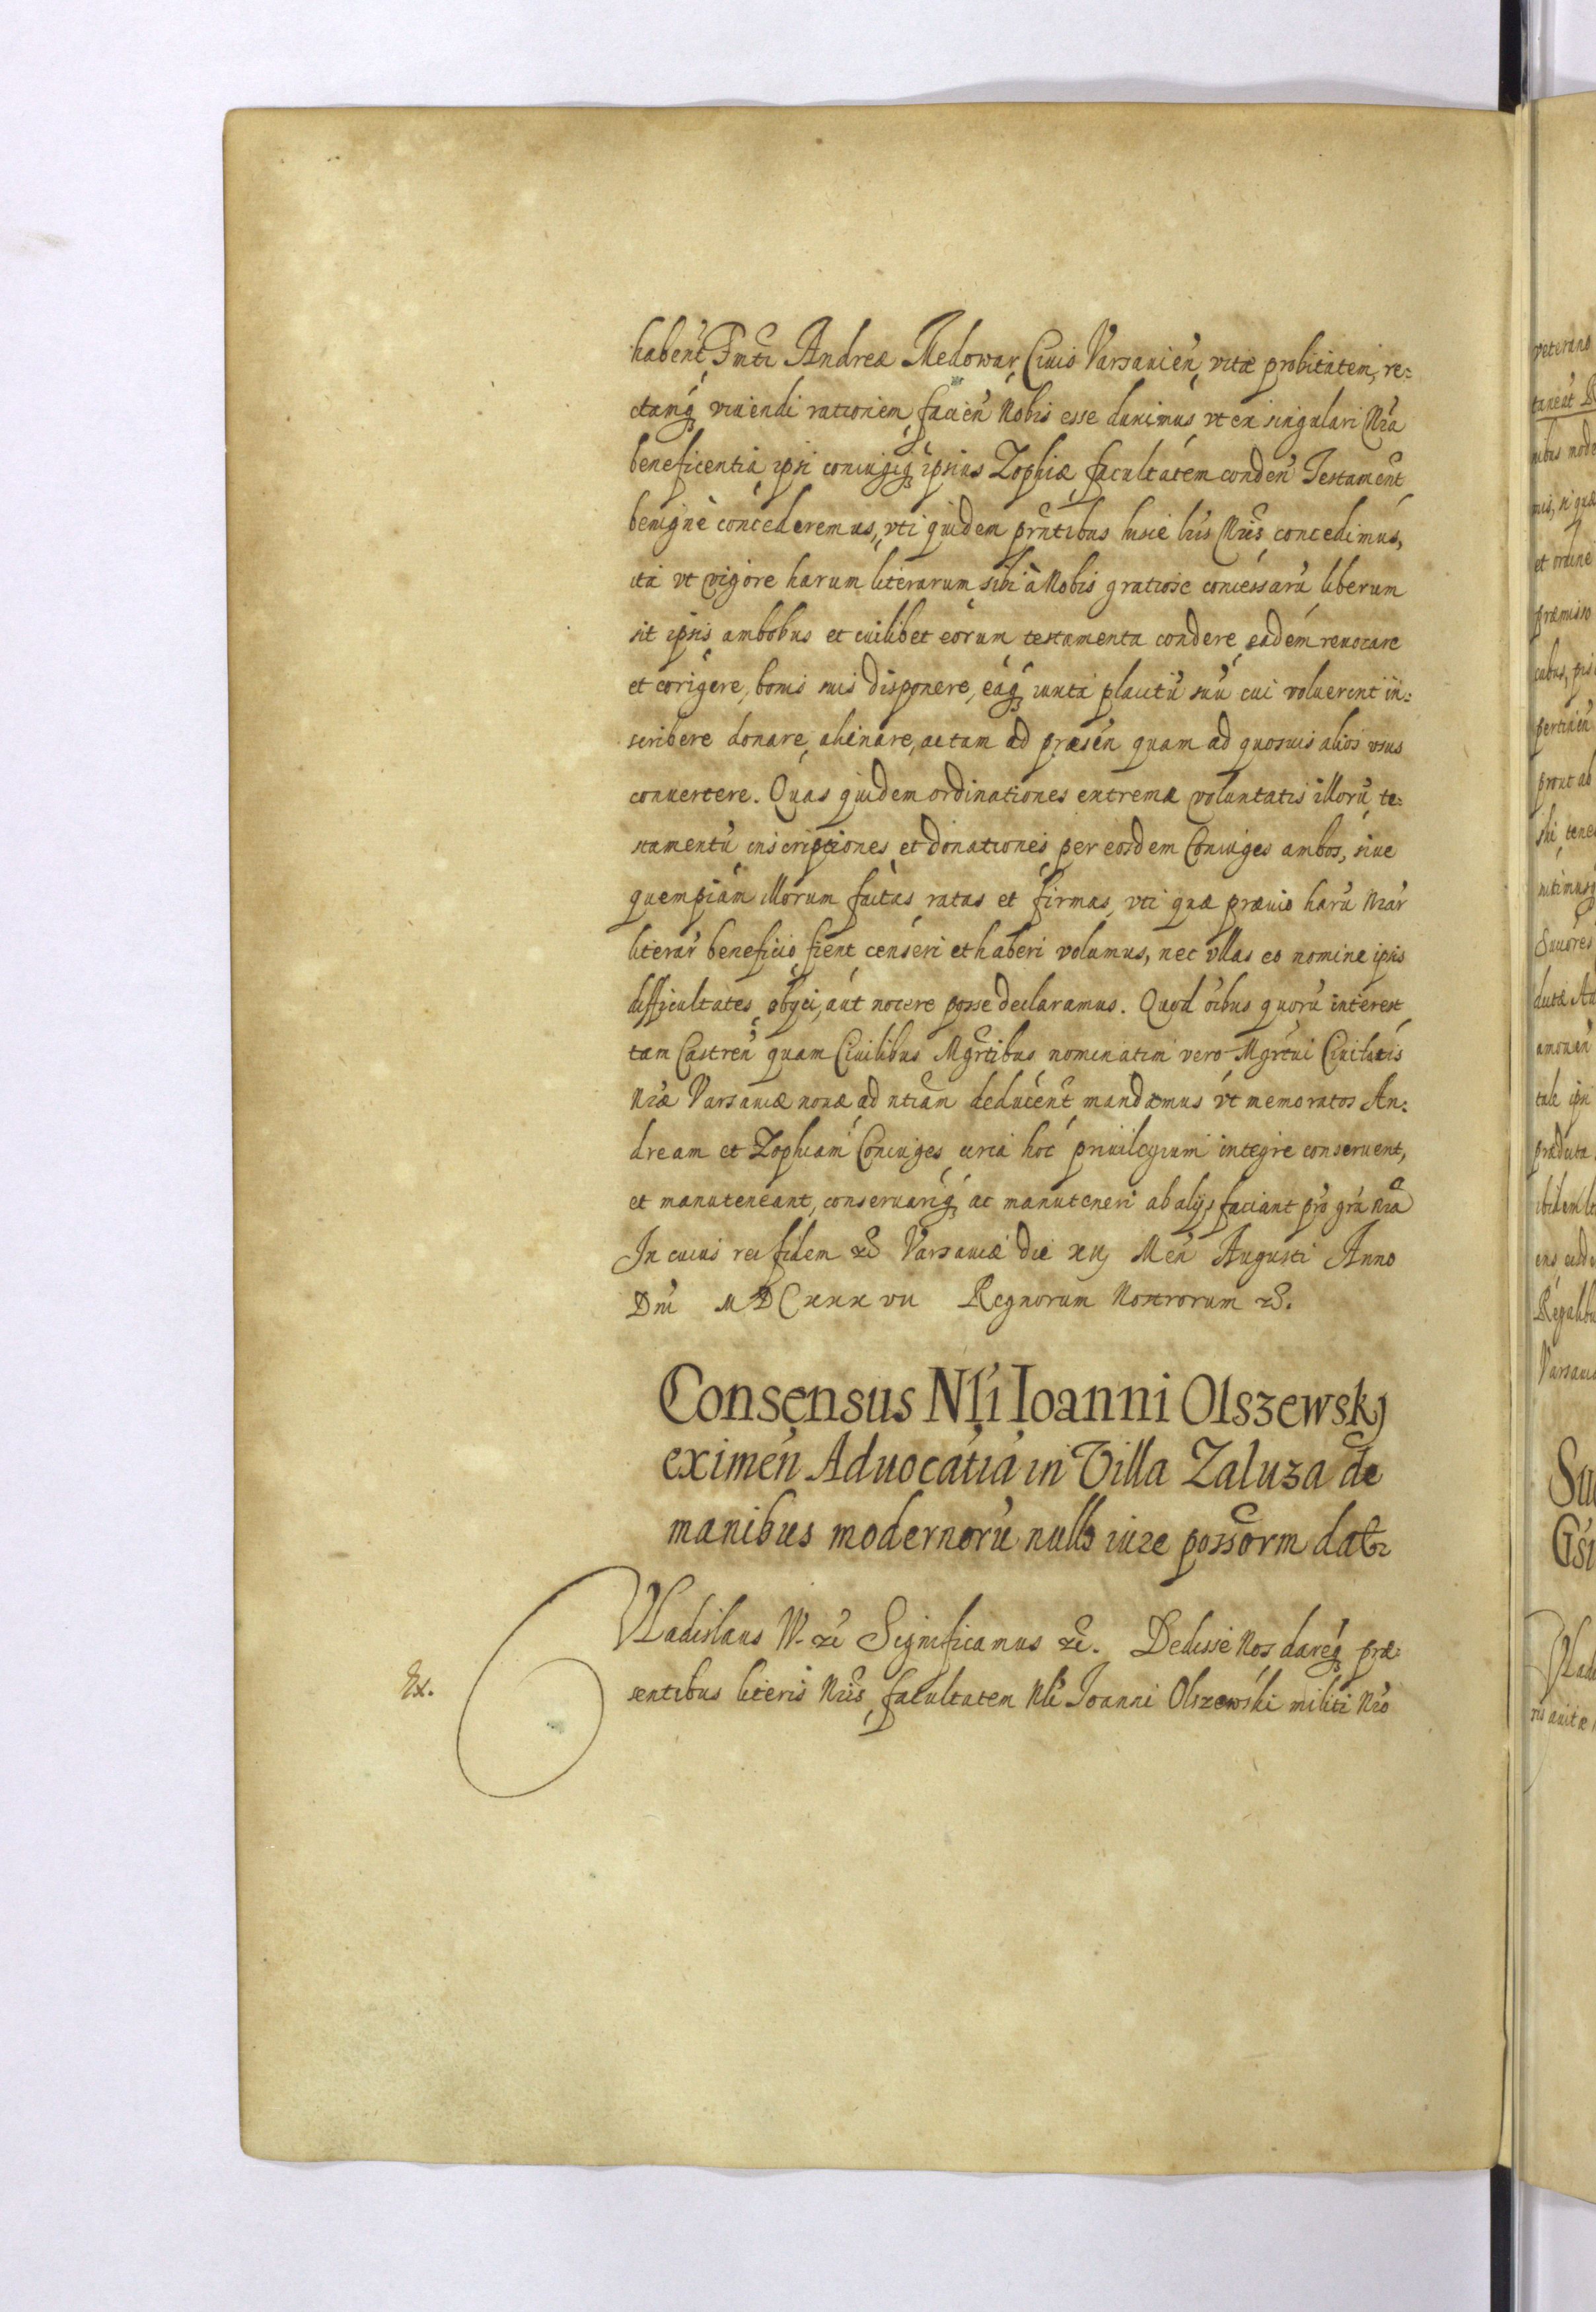 habeñt Fmti Andreæ Medowar Ciuis Varsauień, vitæ probitatem, re:
ctamq viuendi rationem, facień Nobis esse duximus, vt ex singulari Nra
beneficentia, ipsi coniugiq ipsius Zophiæ, facultatem condeñ Testament
benignè concederemus, vti quidem prntibus hisce lris Nris, concedimus,
ita vt vigore harum literarum, sibi à Nobis gratiose concessarũ liberum
sit ipsis ambobus et cuilibet eorum testamenta condere, eadem reuocare
et corigere, bonis suis disponere, eaq iuxta placitũ suũ cui voluerint in:
scribere donare, alienare, ac tam ad præsen quam ad quosuis alios vsus
conuertere. Quas quidem ordinationes extremæ voluntatis illorũ, te:
stamentũ inscriptiones, et donationes, per eosdem Coniuges ambos, siue
quempiam illorum factas, ratas et firmas, vti quæ præuio harũ Nrar
literar beneficio, fient, censeri et haberi volumus, nec vllas eo nomine ipsis
difficultates, obijci, aut nocere posse declaramus. Quod oibus quorũ interest,
tam Castreñ quam Ciuilibus Mgrtibus, nominatim vero Mgrtui Ciuitatis
Nræ Varsauiæ nouæ, ad ntiam deducent mandamus, vt memoratos An:
dream et Zophiam Coniuges, circa hoc priuilegium integre conseruent,
et manuteneant, conseruariq, ac manuteneri ab alijs faciant pro gra Nra
In cuius rei fidem &c Varsauiæ die XII Men Augusti Anno
Dni MDCXXXVII Regnorum Nostrorum &c.
Consensus Nli Ioanni Olszewskj
eximeñ Aduocatia in Villa Zaluza de
manibus modernorũ nullo iure possorm datr
Vladislaus IV. &c Significamus &c. Dedisse Nos dareq præ:
Ex.
sentibus literis Nris, facultatem Nli Ioanni Olszewski militi Nro